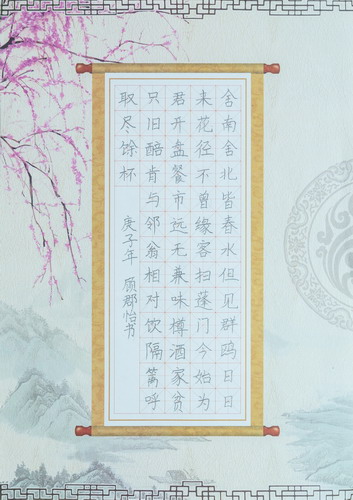 舍南舍北皆春水但见群鸥日日
来花径不曾缘客扫蓬门今始为
君开盘餐市远无兼味樽酒家贫
只旧醅肯与邻翁相对饮隔篱呼
取尽馀杯
庚子年 顾郡怡书